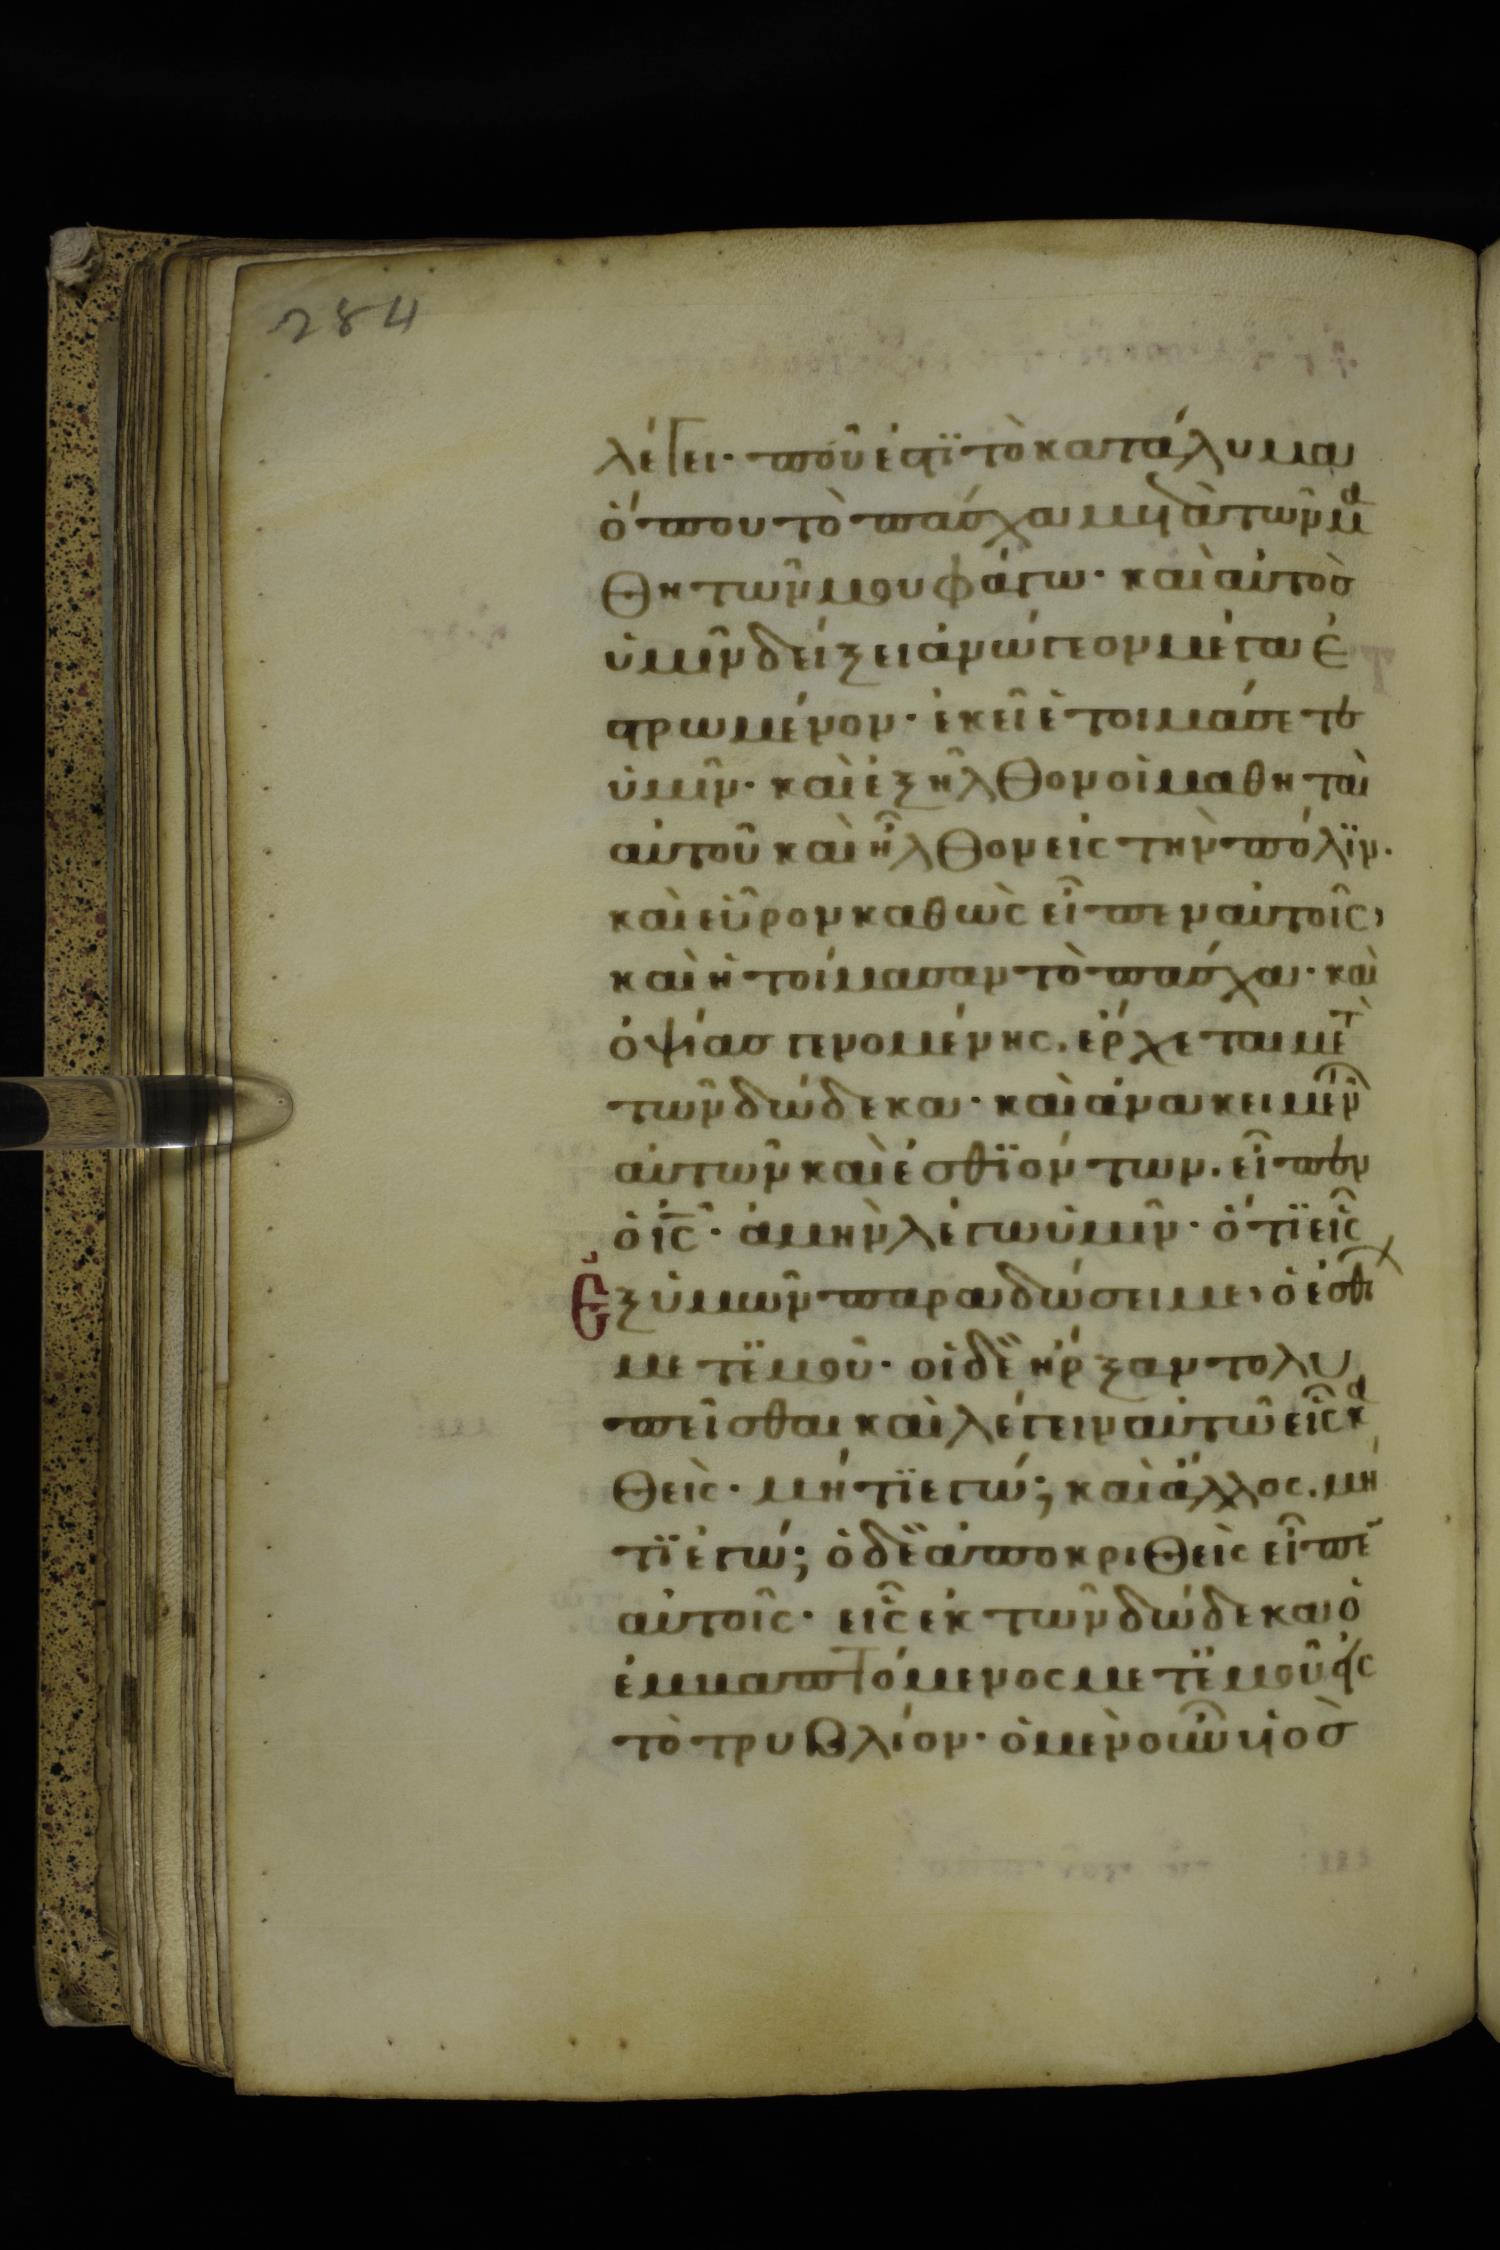 284
λέγει· ποῦ ἐστὶ τὸ κατάλυμα
ὅπου τὸ πάσχα μετὰ τῶν μα
θητῶν μου φάγω· καὶ αὐτὸσ
ὑμῖν δείξει ἀνώγεον μέγα ἐ
στρωμένον· ἐκεῖ ἑτοιμάσετε
ὑμῖν· καὶ ἐξῆλθον οἱ μαθηταὶ
αὐτοῦ καὶ ἦλθον εἰς τὴν πόλϊν·
καὶ εὗρον καθὼς εἶπεν αὐτοῖς,
καὶ ἡτοίμασαν τὸ πάσχα· καὶ
ὀψίασ γενομένης. ἔρχεται μετ
τῶν δώδεκα· καὶ ἀνακειμέν
αὐτῶν καὶ ἐσθϊόντων. εἶπεν
ὁ ἰς· ἀμὴν λέγω ὑμῖν· ὅτϊ εἷς
ἐξ ὑμῶν παραδώσει με, ὁ ἐσθι
μετ ἐμοῦ· οἱ δὲ ἤρξαντο λυ
πεῖσθαι καὶ λέγειν αὐτῶ εἷς κα
θεὶς· μήτϊ ἐγώ; καὶ ἄλλος. μή
τϊ ἐγώ; ὁ δὲ ἀποκριθεὶς εἶπε
αὐτοῖς· εἷς ἐκ τῶν δώδεκα ὁ
ἐμβαπτόμενος μετ ἐμοῦ εἰς
τὸ τρυβλίον· ὁ μὲν οὖν υἱὸσ